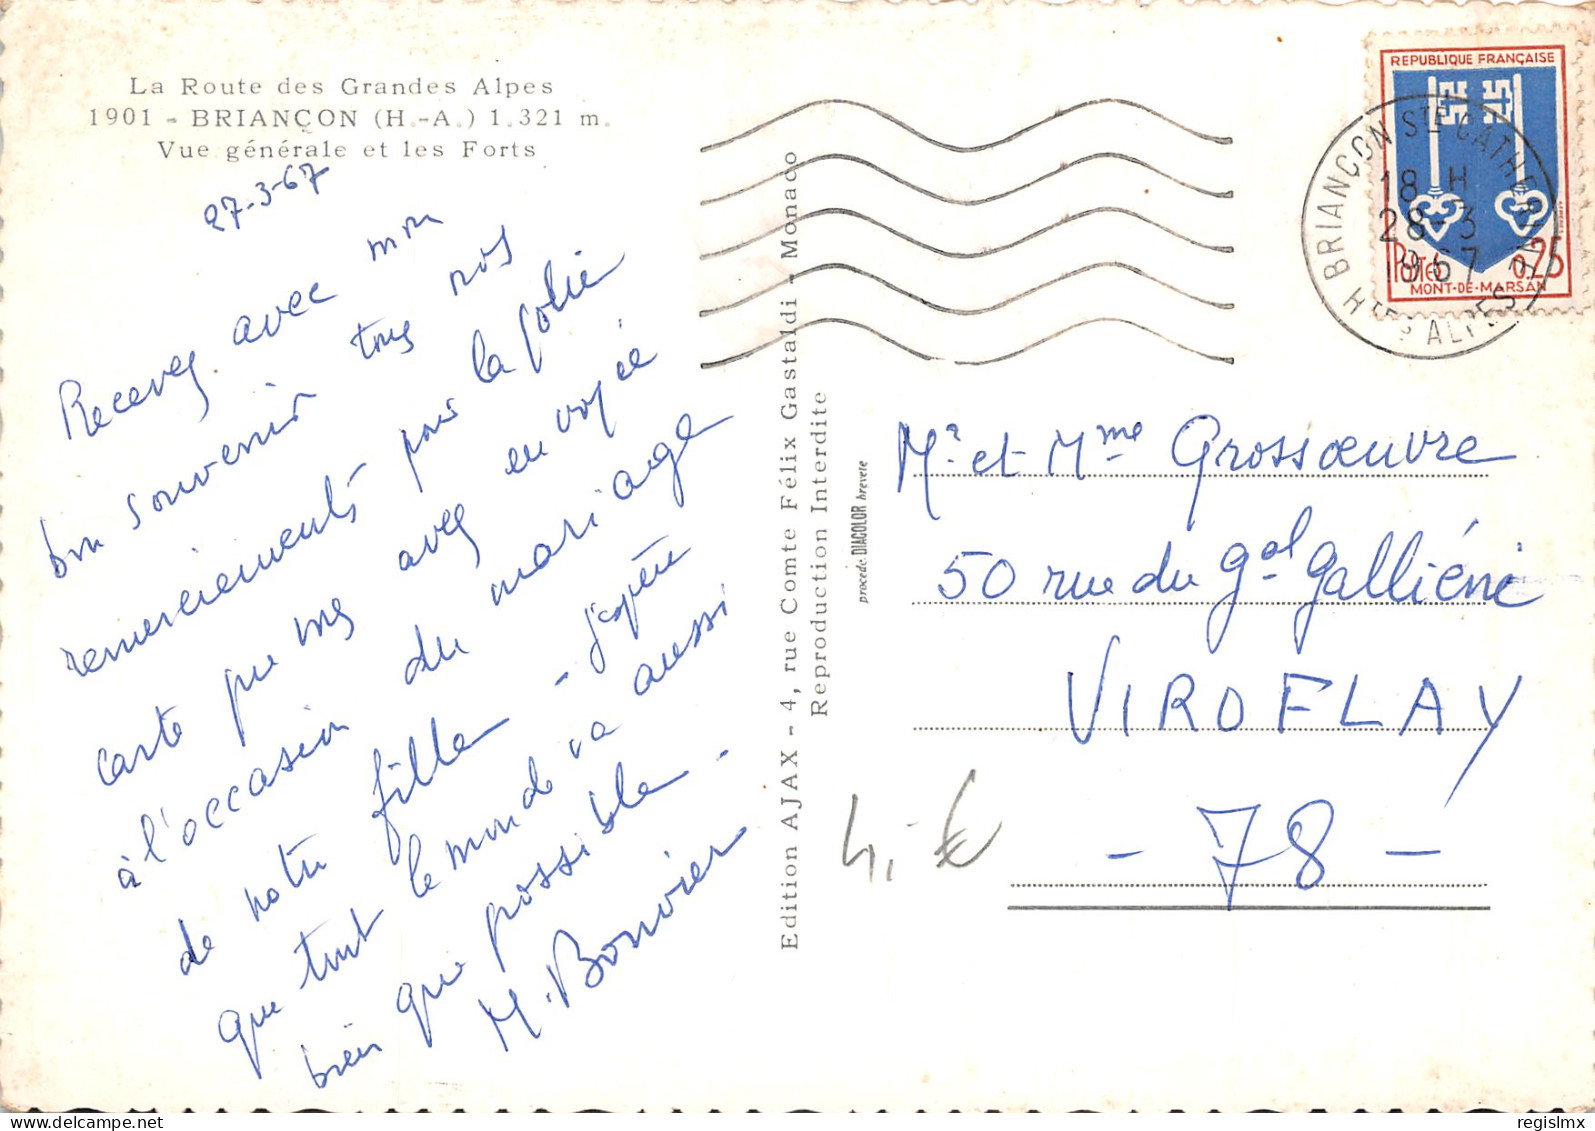 La Route des Grandes Alpes
1901 - BRIANÇON (H.-A.) 1.321 m.
Vue générale et les Forts
27-3-67
Recevez avec mon
bon souvenir tous nos
remerciements pour la jolie
carte que vous avez envoyée
à l'occasion du mariage
de notre fille - J'espère
que tout le monde va aussi
bien que possible -
M. Bonvier
Edition AJAX - 4, rue Comte Félix Gastaldi - Monaco
Reproduction Interdite
procédé DIACOLOR breveté
REPUBLIQUE FRANÇAISE
Postes 0,25
MONT-DE-MARSAN
BRIANÇON STE CATHERINE
18 H
28-3
1967
HTES ALPES
Mr et Mme Grossoeuvre
50 rue du Gal Galliéni
VIROFLAY
- 78 -
delcampe.net
regislmx